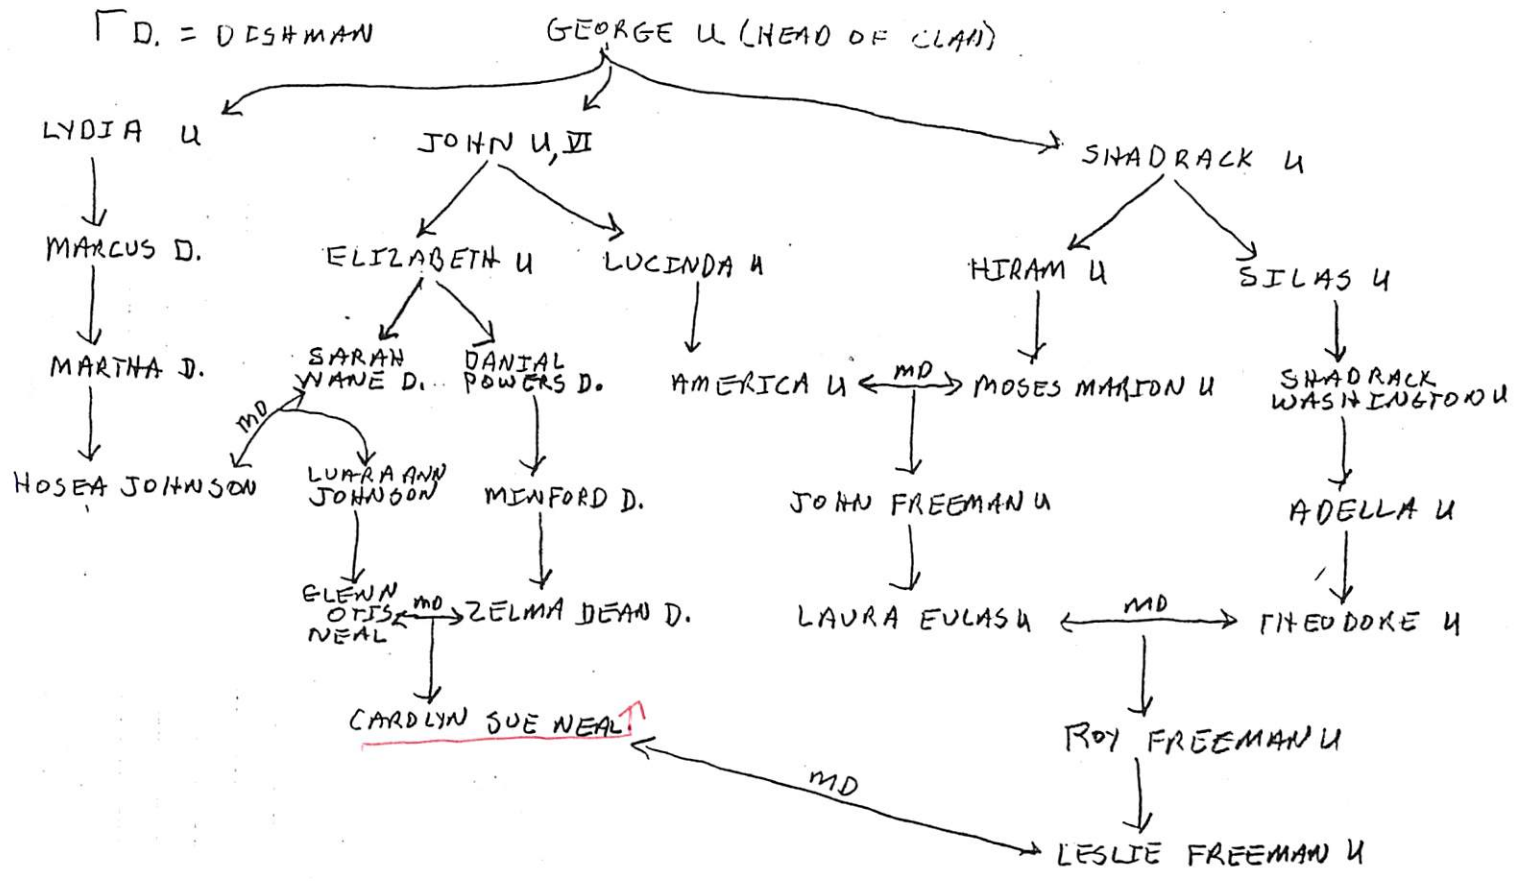 D. = DISHMAN
GEORGE U (HEAD OF CLAN)
LYDIA U
JOHN U, VI
SHADRACK U
MARCUS D.
ELIZABETH U
LUCINDA U
HIRAM U
SILAS U
MARTHA D.
SARAH
WANE D.
DANIAL
POWERS D.
AMERICA U
MD
MOSES MARION U
SHADRACK
WASHINGTON U
MD
HOSEA JOHNSON
LUARA ANN
JOHNSON
MINFORD D.
JOHN FREEMAN U
ADELLA U
GLENN
OTIS
NEAL
MD
ZELMA DEAN D.
LAURA EULAS U
MD
THEODORE U
CAROLYN SUE NEAL
ROY FREEMAN U
MD
LESLIE FREEMAN U